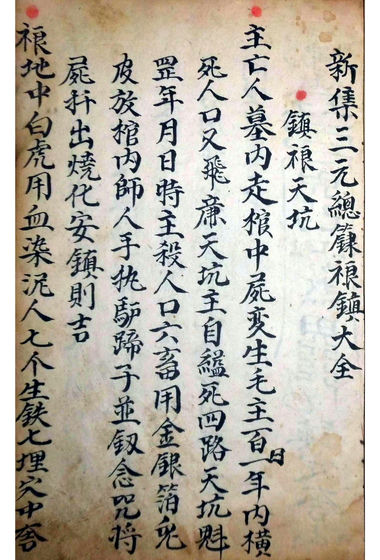 新集三元總籙禳鎮大全
鎮禳天坑
主亡人墓内走棺中屍变生毛主一百日一年内橫
死人口又飛廉天坑主自縊死四路天坑魁
罡年月日時主殺人口六畜用金銀箔兎
皮放棺内師人手执驴蹄子並釰念咒将
屍扞出燒化安鎮則吉
禳地中白虎用血染泥人七个生鉄七埋穴中害